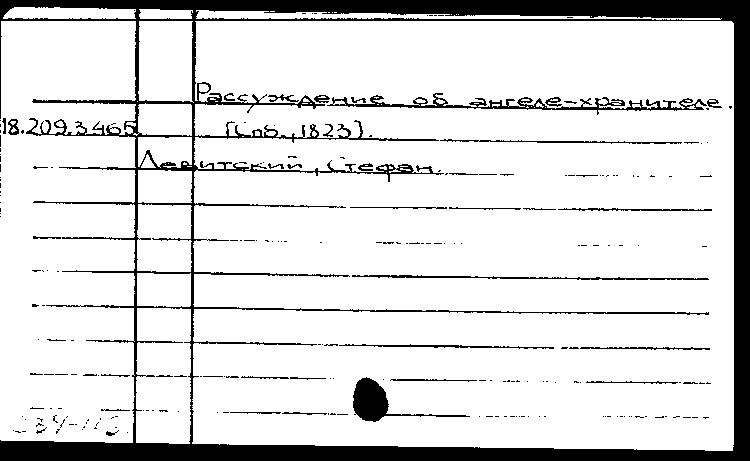 Рассуждение об ангеле-хранителе.
18.209.3.465 [Спб., 1823].
Левитский, Стефан.